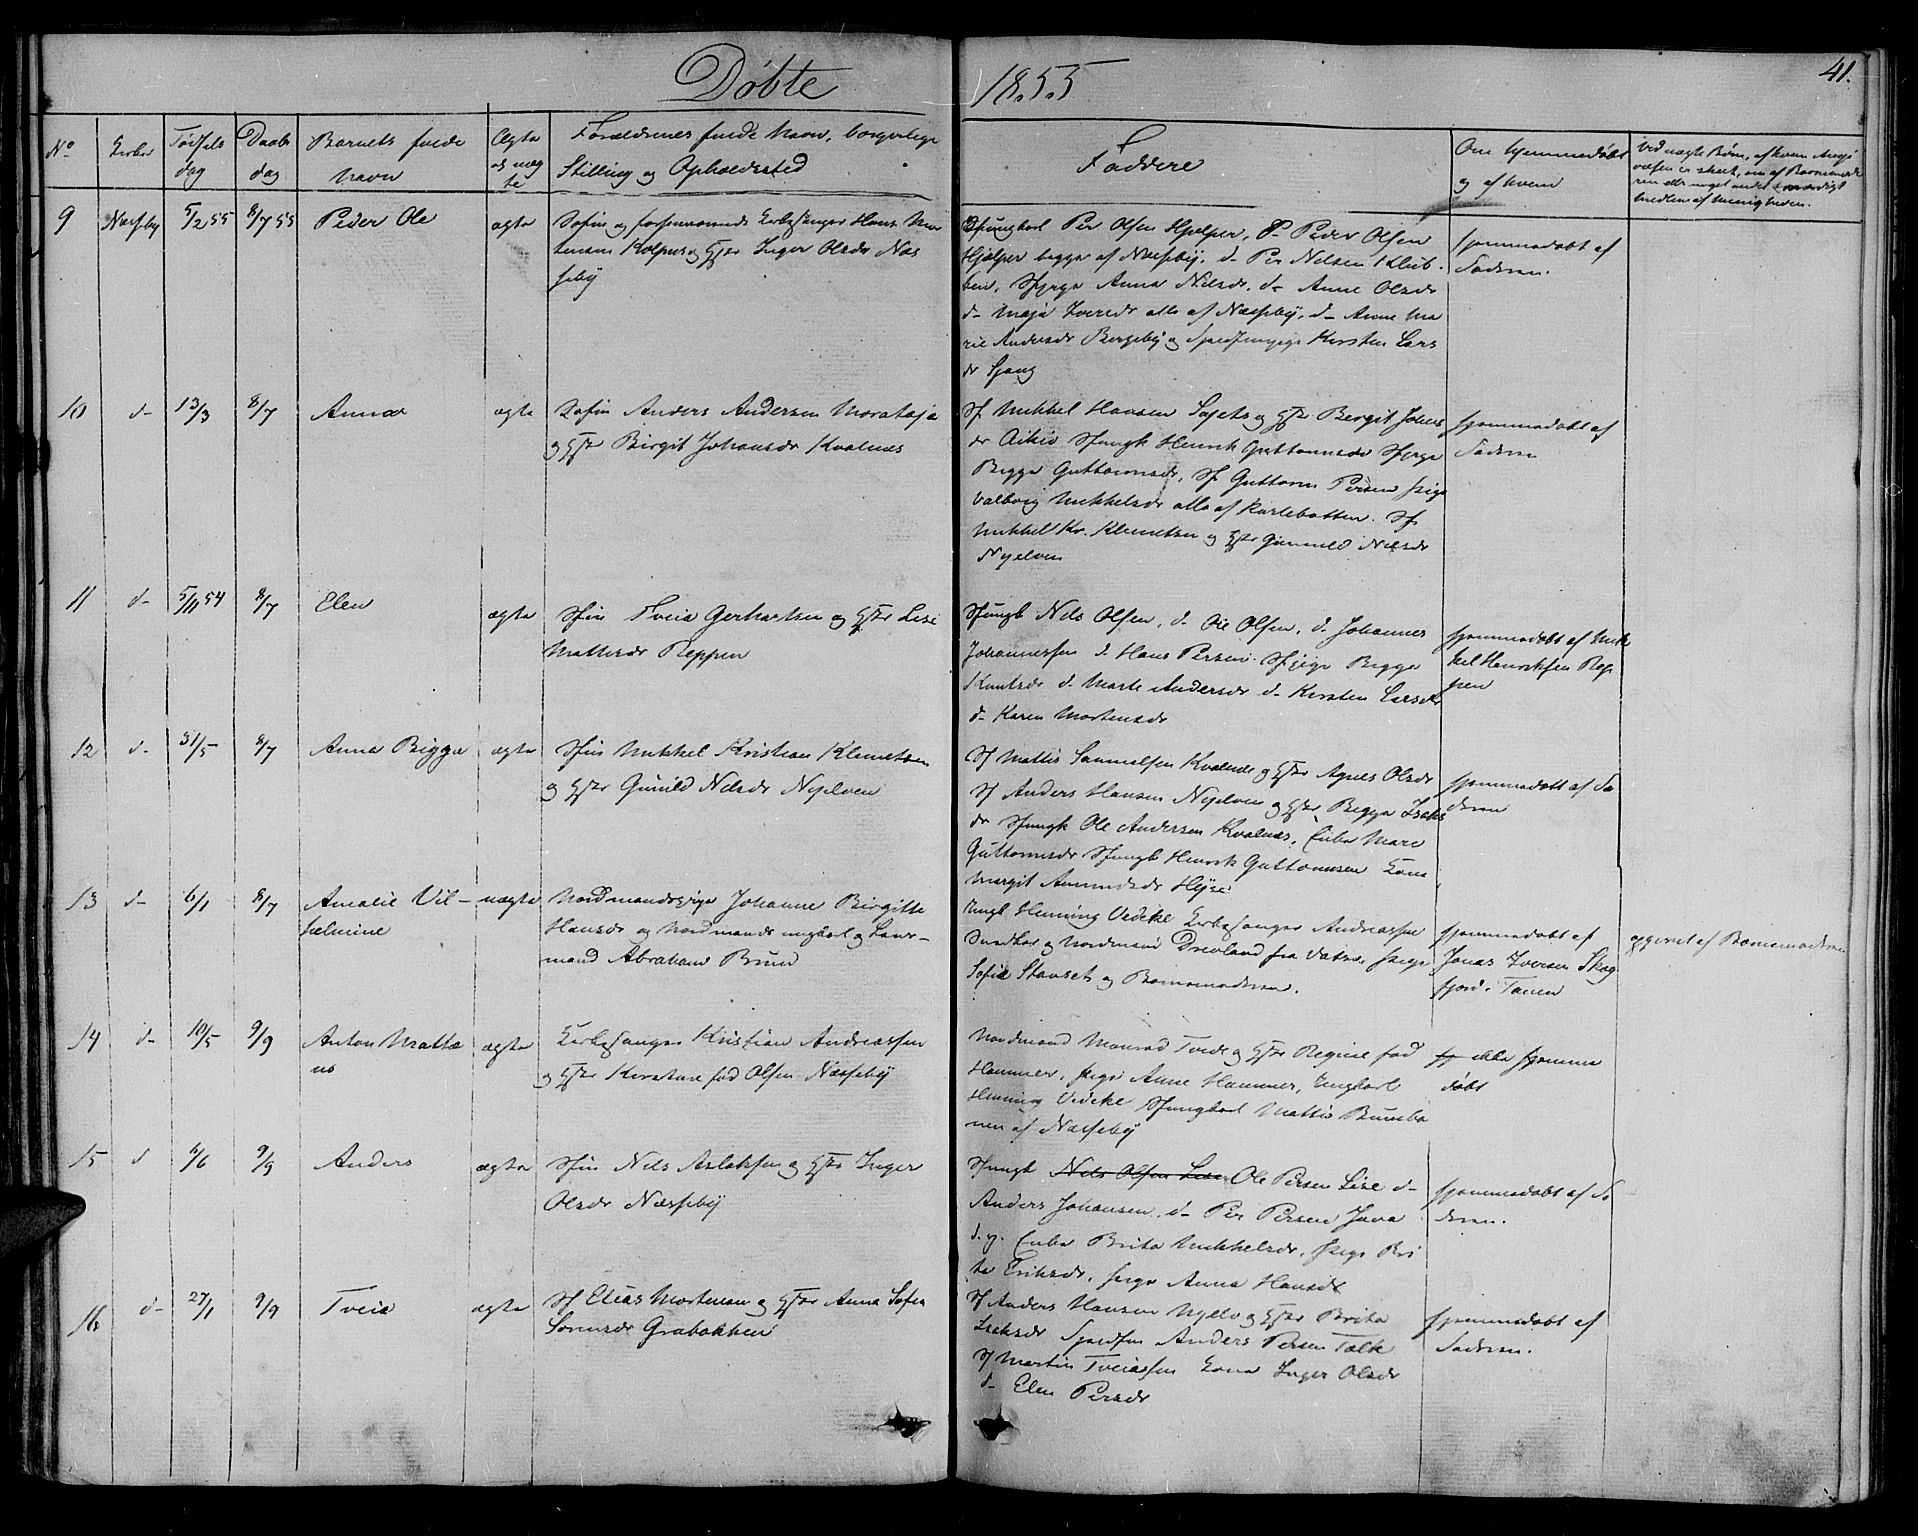 Døbte
1855
41.
No
Kirke
Fødsels
dag
Daabs
dag
Barnets fulde
Navn
Ægte
el uæg
te
Forældrenes fulde Navn, borgerlige
Stilling og Opholdssted
Faddere
Om hjemmedøbt
og af hvem
Ved uægte Børn, af hvem Angi
velsen er skeet, om af Barnemode
ren eller noget andet troværdigt
Medlem af Menigheden.
9
Næsseby
5/2 55
8/7 55
Peder Ole
ægte
Søfin og Kirkesanger Hans Mor
tensen Kolpus og Hstr Inger Olsdr Næs
seby
Sfungkarl Per Olsen Hjelper, d- Peder Olsen
Hjelper begge af Næsseby, d- Per Nilsen Klub
ben, Sfpige Anna Nilsdr, d- Anne Olsdr
d- Maja Iversdr alle af Næsseby, d- Anne Ma
rie Andersdr Bergeby og Kirsten Lars
dr
hjemmedøbt af
Faderen.
10
d-
13/3
8/7
Anna
ægte
Søfin Anders Andersen Morataja
og Hstr Birgit Johansdr Kvalnæs
Sf Mikkel Hansen Sajets og Hstr Birgit Johns
dr Aikio Sfungk Henrik Guttormsen Sfpige
Bigga Guttormsdr, Sf Guttorm Persen pige
Valborg Mikkelsdr alle af Karlebotten. Sf
Mikkel Kr. Klemetsen og Hstr Gunnild Nilsdr
Nyelven
hjemmedøbt af
Faderen
11
d-
5/11 54
8/7
Elen
ægte
Sfin Tveia Gerhartsen og Hstr Lisi
Mathisdr Reppen
Sfungk Nils Olsen, d- Ole Olsen, d. Johannes
Johannessen d- Hans Persen Sfpige Bigga
Knutsdr d- Marte Andersdr d- Kirsten Larsdr
d- Karen Mortensdr
hjemmedøbt af Mik
kel Henriksen Rep
pen
12
d-
31/5
8/7
Anna Bigga
ægte
Sfin Mikkel Kristian Klemetsen
og Hstr Gunild Nilsdr Nyelven
Sf Mattis Samuelsen Kvalnæs og Hstr Agnes Olsdr
Sf Anders Hansen Nyelven og Hstr Bigga Isaks
dr Sfungk Ole Andersen Kvalnæs, Enke Mare
Guttormsdr Sfungk Henrik Guttormsen Kona
Margit Ammundsdr
hjemmedøbt af Fa
deren
13
d-
6/1
8/7
Amalie Vil-
helmine
uægte
Nordmandspige Johanne Birgitte
Hansdr og Nordmand ungkarl og Land-
mand Abraham Bruun
Ungk Henning Vedeke Kirkesanger Andreassen
og Nordmand Drevland fra Vadsø, pige
Sofie Stanset og Barnemoderen.
hjemmedøbt af
Jonas Iversen Skog
fjord i Tanen
opgivet af Barnemoderen
14
d-
10/5
9/9
Anton Mathi
as
ægte
Kirkesanger Kristian Andreassen
og Hstr Kirstine fød Olsen Næsseby
Nordmand Monrad Tvede og Hstr Regine fød
Hammer, pige Anne Hammer, Ungkarl
Henning Vedeke Sfungkarl Mattis
af Næsseby
ikke hjemme
døbt
15
d
6/6
9/9
Anders
ægte
Sfin Nils Aslaksen og Hstr Inger
Olsdr Næsseby
Sfungk Nils Olsen Ole Persen Lise d-
Anders Johansen d- Per Persen Java
d. y. Enke Brita Mikkelsdr, pige Bri
ta Eriksdr, pige Anna Hansdr
hjemmedøbt af Fa
deren.
16
d-
27/1
9/9
Tveia
ægte
Sf Elias Mortensen og Hstr Anna Sofia
Sørensdr Grabakken
Sf Anders Hansen Nyelv og Hstr Brita
Isaksdr Anders Persen Tolk
Sf Martin Tveiassen Kona Inger Olsdr
d- Elen Persdr
hjemmedøbt af
Faderen.